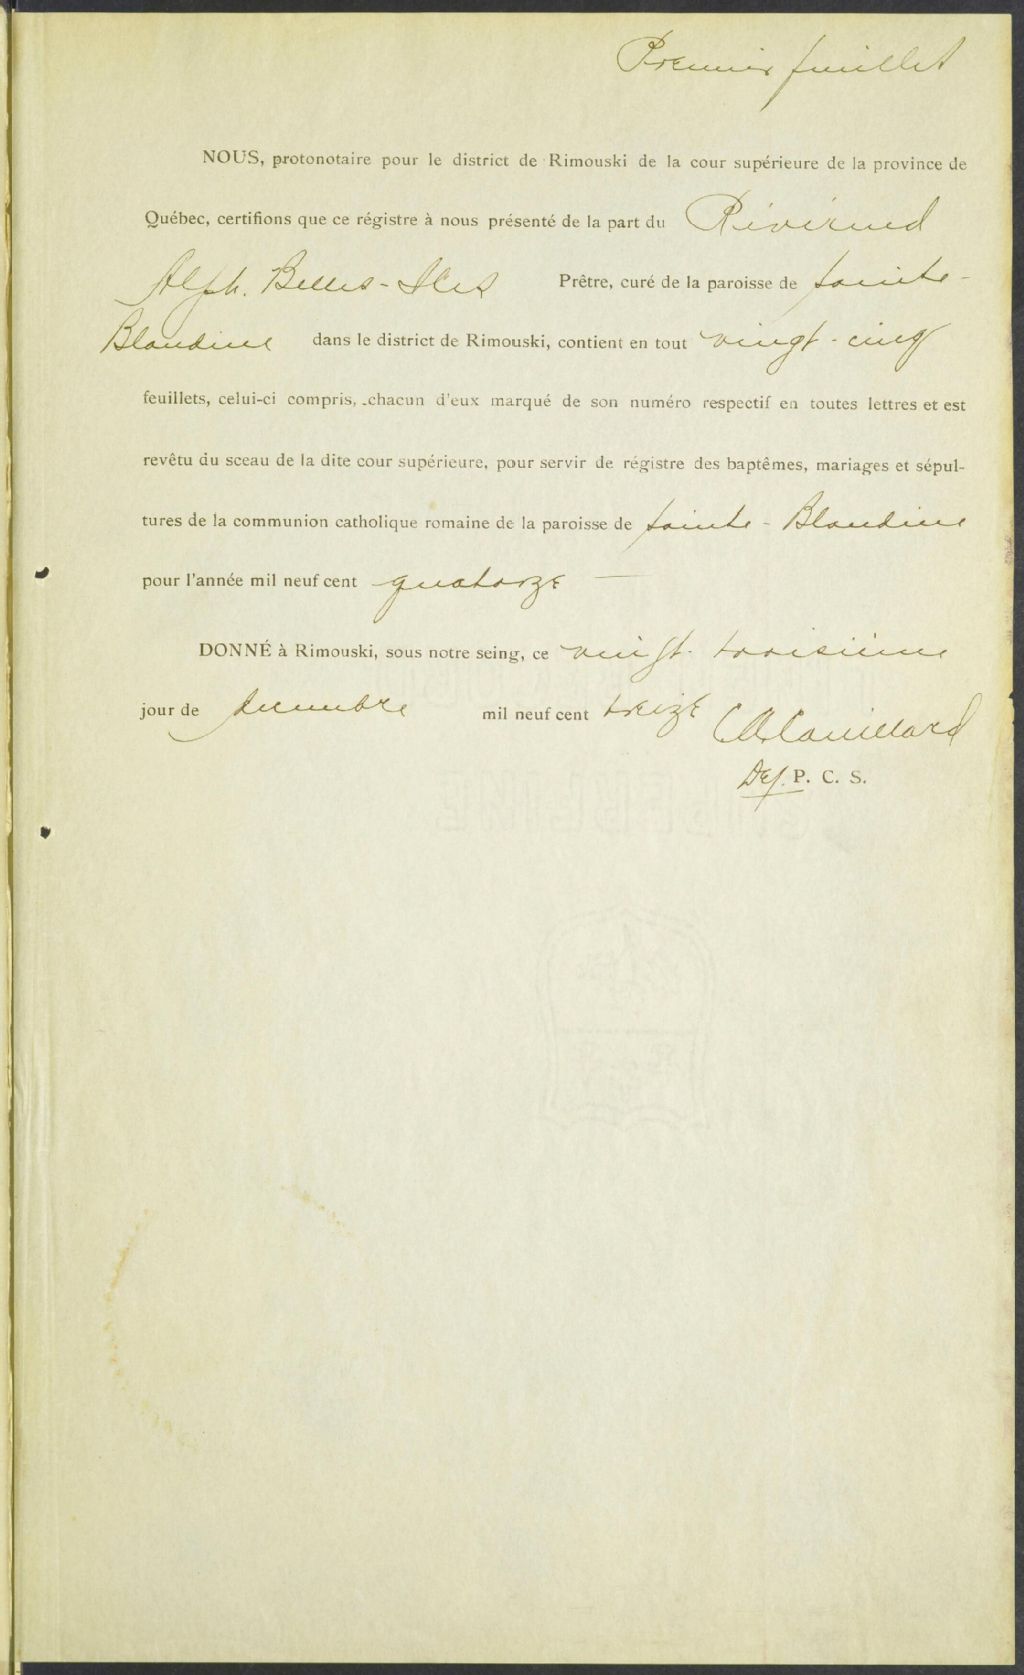 Premier feuillet
NOUS, protonotaire pour le district de Rimouski de la cour supérieure de la province de
Québec, certifions que ce régistre à nous présenté de la part du Révérend
Alph. Belles-Iles Prêtre, curé de la paroisse de Sainte-
Blandine dans le district de Rimouski, contient en tout vingt-cinq
feuillets, celui-ci compris, chacun d'eux marqué de son numéro respectif en toutes lettres et est
revêtu du sceau de la dite cour supérieure, pour servir de régistre des baptêmes, mariages et sépul-
tures de la communion catholique romaine de la paroisse de Sainte-Blandine
pour l'année mil neuf cent quatorze —
DONNÉ à Rimouski, sous notre seing, ce vingt-troisième
jour de décembre mil neuf cent treize
Dep. P. C. S.